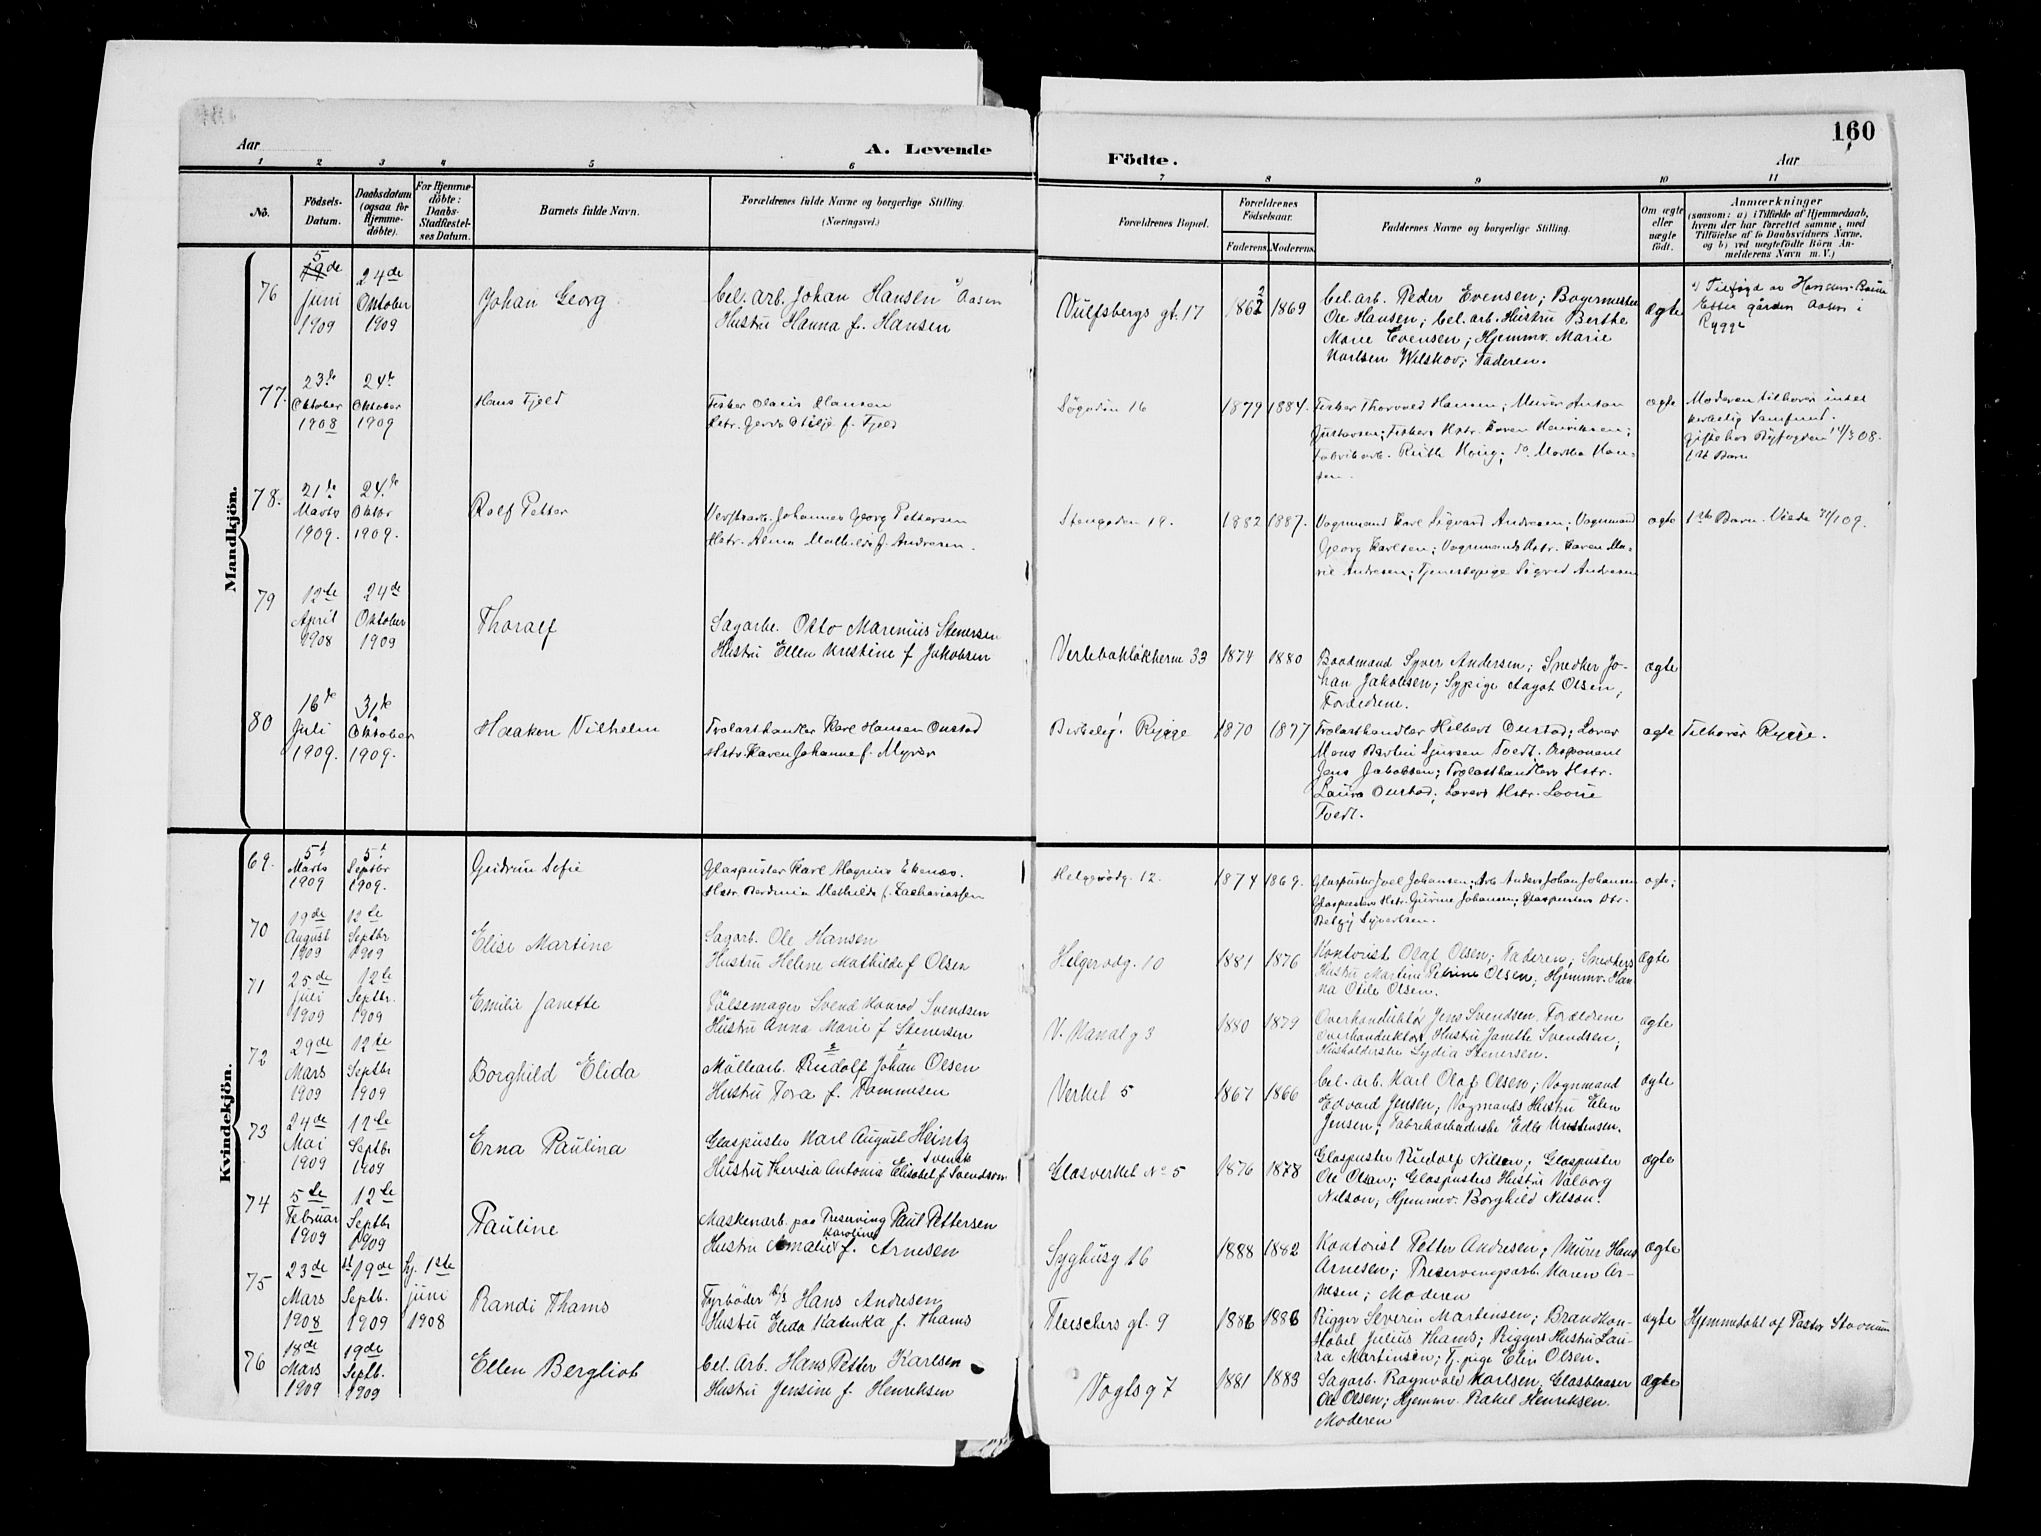 160
Aar
A. Levende
Födte.
Aar
1 2 3 4 5 6 7 8 9 10 11
No.
Födsels-
Datum.
Daabsdatum
(ogsaa for
Hjemme-
döbte).
For Hjemme-
döbte:
Daabs-
Stadfæstel-
ses Datum.
Barnets fulde Navn.
Forældrenes fulde Navne og borgerlige Stilling
(Næringsvei.)
Forældrenes Bopæl.
Forældrenes
Födselsaar.
Faderens. Moderens.
Faddernes Navne og borgerlige Stilling.
Om ægte
eller
uægte
födt.
Anmærkninger
(saasom: a) i Tilfælde af Hjemmedaab,
hvem der har forrettet samme, med
Tilföielse af to Daabsvidners Navne.
og b) ved uægtefödte Börn An-
melderens Navn m. V.)
Mandkjön.
76
5
19de
Juni
1909
24de
Oktober
1909
Johan Georg
bel. arb. Johan Hansen Aasen
Hustru Hanna f. Hansen
Vulfsbergs gt. 17
1862 1869
bel. arb. Peder Evensen;
Ole Hansen; bel. arb. Hustru Berthe
Marie Evensen; Hjemmv. Marie
Karlsen Wilskov; Faderen.
ægte
Efter gården Aasen i
Rygge
77.
23de
Oktober
1908
24de
Oktober
1909
Hans Fjeld
Fisker Olaus Hansen
f. Fjeld
16
1879 1884.
Fisker Thorvald Hansen; Murer Anton
Gustavsen; Fiskers Hstr. Karen Henriksen;
Fabrikarb. Ruth; do. Martha Han-
sen.
ægte
Moderen tilhører intet
kirkelig Samfund.
Gift hos Byfogden 14/3 08.
1ste Barn
78.
21de
Marts
1909.
24de
Oktbr
1909.
Rolf Petter
Johannes Georg Pettersen
Hstr. Alma Mathilde f. Andresen.
Stengaden 19.
1882 1887.
Vognmand Karl Sigvard Andresen; Vognmand
Georg Karlsen; Vognmands Hstr. Karen Ma-
rie Andresen; Tjenestepige Sigrid Andresen
ægte
1ste Barn.
79
12te
April
1908
24de
Oktober
1909
Thoralf
Sagarb. Otto Marenius Stenersen
Hustru Ellen Kristine f. Jakobsen
33
1874 1880
Baadmand Syver Andersen; Snedker Jo-
han Jakobsen; Sypige Aagot Olsen;
Forældrene.
ægte
80
16de
Juli
1909.
31te
Oktober
1909.
Haakon Vilhelm
Trelasthandler Karl Hansen Onstad
Hstr. Karen Johanne f. Myrer
Rygge
1870 1877
Trelasthandler Helbert Onstad;
Jens Jakobsen; Trelasthandlers Hstr.
Laura Onstad; Hstr. Lovise
Tvedt.
ægte
Tilhører Rygge.
Kvindekjön.
69.
5te
Marts
1909
5te
Septbr
1909.
Gudrun Sofie
Glaspuster Karl Magnus Ekenæs.
Hstr. Berdinia Mathilde f. Zachariassen
Helgerødg. 12.
1874 1869.
Glaspuster Joel Johansen; Arb. Anders Johan Johansen
Glaspusters Hstr. Gurine Johansen; Glaspusters Dtr.
Betzy Syvertsen.
ægte;
70
19de
August
1909
12te
Septbr
1909
Elise Martine
Sagarb. Ole Hansen
Hustru Helene Mathilde f Olsen
Helgerødg. 10
1881 1876
Kontorist Olaf Olsen; Faderen; Snedkers
Hustru Martine Petrine Olsen; Hjemmv. Han-
na Otile Olsen.
ægte
71
25de
Juli
1909
12te
Septbr.
1909
Emilie Janette
Pölsemager Svend Konrad Svendsen
Hustru Anna Marie f Stenersen
V. Kanal g 3
1880 1879
Overkonduktør Jens Svendsen, Forældrene
Overkonduktørs Hustru Janette Svendsen;
Husholderske Lydia Stenersen.
ægte
72
29de
Mars
1909
12te
Septbr
1909
Borghild Elida
Møllearb. Rudolf Johan Olsen
Hustru Tora f. Tommesen
Verket 5
1867 1866
bel. arb. Karl Olaf Olsen; Vognmand
Edvard Jensen; Vogmands Hustru Elen
Jensen; Fabrikarbeiderske Edle Kristensen.
ægte
73
24de
Mai
1909
12te
Septbr
1909
Erna Paulina
Glaspuster Karl August Heintz
svensk
Hustru Theresia Antonia Elisabet f Svendsson
Glasverket No 5
1876 1878
Glaspuster Rudolf Nilsen; Glaspuster
Ole Olsen; Glaspusters Hustru Valborg
Nilson; Hjemmev. Borghild Nilson.
ægte
74
5te
Februar
1909
12te
Septbr
1909
Pauline
Maskenarb. paa Preserving Paul Pettersen
Karoline
Hustru Amalie f. Arnesen
Syghusg 16
1888 1882
Kontorist Petter Andresen; Murer Hans
Arnesen; Preservingsarb. Karen Ar-
nesen; Moderen
ægte
75
23de
Mars
1908
19de
Septb.
1909
Hj. 1ste
juni
1908
Randi Thams
Fyrböder D/S Hans Andresen
Hustru Elida Katinka f. Thams
Fleischers gt. 9
1886 1886
Rigger Severin Martinsen; Brandkon-
stabel Julius Thams; Riggers Hustru Lau-
ra Martinsen; Tj. pige Elin Olsen.
ægte
Hjemmedøbt af Pastor
76
18de
Mars
1909
19de
Septb.
1909
Ellen Bergliot
bel. Arb. Hans Petter Karlsen
Hustru Jensine f. Henriksen
Vogts g 7
1881 1883
Sagarb. Ragnvald Karlsen, Glasblaaser
Ole Olsen; Hjemmv. Rakel Henriksen.
Moderen
ægte